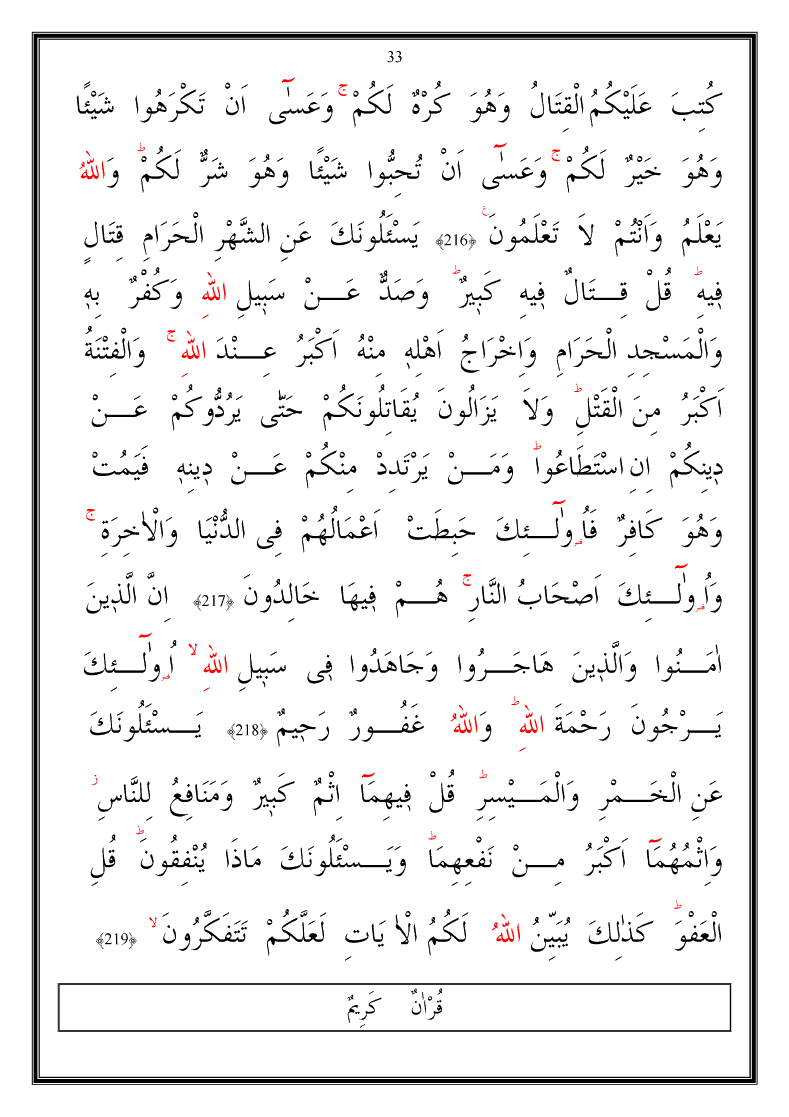 33
كُتِبَ عَلَيْكُمُ الْقِتَالُ وَهُوَ كُرْهٌ لَكُمْۚ وَعَسٰٓى اَنْ تَكْرَهُوا شَيْئًا
وَهُوَ خَيْرٌ لَكُمْۚ وَعَسٰٓى اَنْ تُحِبُّوا شَيْئًا وَهُوَ شَرٌّ لَكُمْؕ وَاللّٰهُ
يَعْلَمُ وَاَنْتُمْ لاَ تَعْلَمُونَࣖ ﴿216﴾ يَسْئَلُونَكَ عَنِ الشَّهْرِ الْحَرَامِ قِتَالٍ
ف۪يهِؕ قُلْ قِتَالٌ ف۪يهِ كَب۪يرٌؕ وَصَدٌّ عَنْ سَب۪يلِ اللّٰهِ وَكُفْرٌ بِه۪
وَالْمَسْجِدِ الْحَرَامِ وَاِخْرَاجُ اَهْلِه۪ مِنْهُ اَكْبَرُ عِنْدَ اللّٰهِۚ وَالْفِتْنَةُ
اَكْبَرُ مِنَ الْقَتْلِؕ وَلاَ يَزَالُونَ يُقَاتِلُونَكُمْ حَتّٰى يَرُدُّوكُمْ عَنْ
د۪ينِكُمْ اِنِ اسْتَطَاعُواؕ وَمَنْ يَرْتَدِدْ مِنْكُمْ عَنْ د۪ينِه۪ فَيَمُتْ
وَهُوَ كَافِرٌ فَاُو۬لٰٓئِكَ حَبِطَتْ اَعْمَالُهُمْ فِى الدُّنْيَا وَاْلاٰخِرَةِۚ
وَاُو۬لٰٓئِكَ اَصْحَابُ النَّارِۚ هُمْ ف۪يهَا خَالِدُونَ ﴿217﴾ اِنَّ الَّذ۪ينَ
اٰمَنُوا وَالَّذ۪ينَ هَاجَرُوا وَجَاهَدُوا ف۪ى سَب۪يلِ اللّٰهِۙ اُو۬لٰٓئِكَ
يَرْجُونَ رَحْمَةَ اللّٰهِؕ وَاللّٰهُ غَفُورٌ رَح۪يمٌ ﴿218﴾ يَسْئَلُونَكَ
عَنِ الْخَمْرِ وَالْمَيْسِرِؕ قُلْ ف۪يهِمَٓا اِثْمٌ كَب۪يرٌ وَمَنَافِعُ لِلنَّاسِؗ
وَاِثْمُهُمَٓا اَكْبَرُ مِنْ نَفْعِهِمَاؕ وَيَسْئَلُونَكَ مَاذَا يُنْفِقُونَؕ قُلِ
الْعَفْوَؕ كَذٰلِكَ يُبَيِّنُ اللّٰهُ لَكُمُ اْلاٰيَاتِ لَعَلَّكُمْ تَتَفَكَّرُونَۙ ﴿219﴾
قُرْاٰنٌ كَرِيمٌ